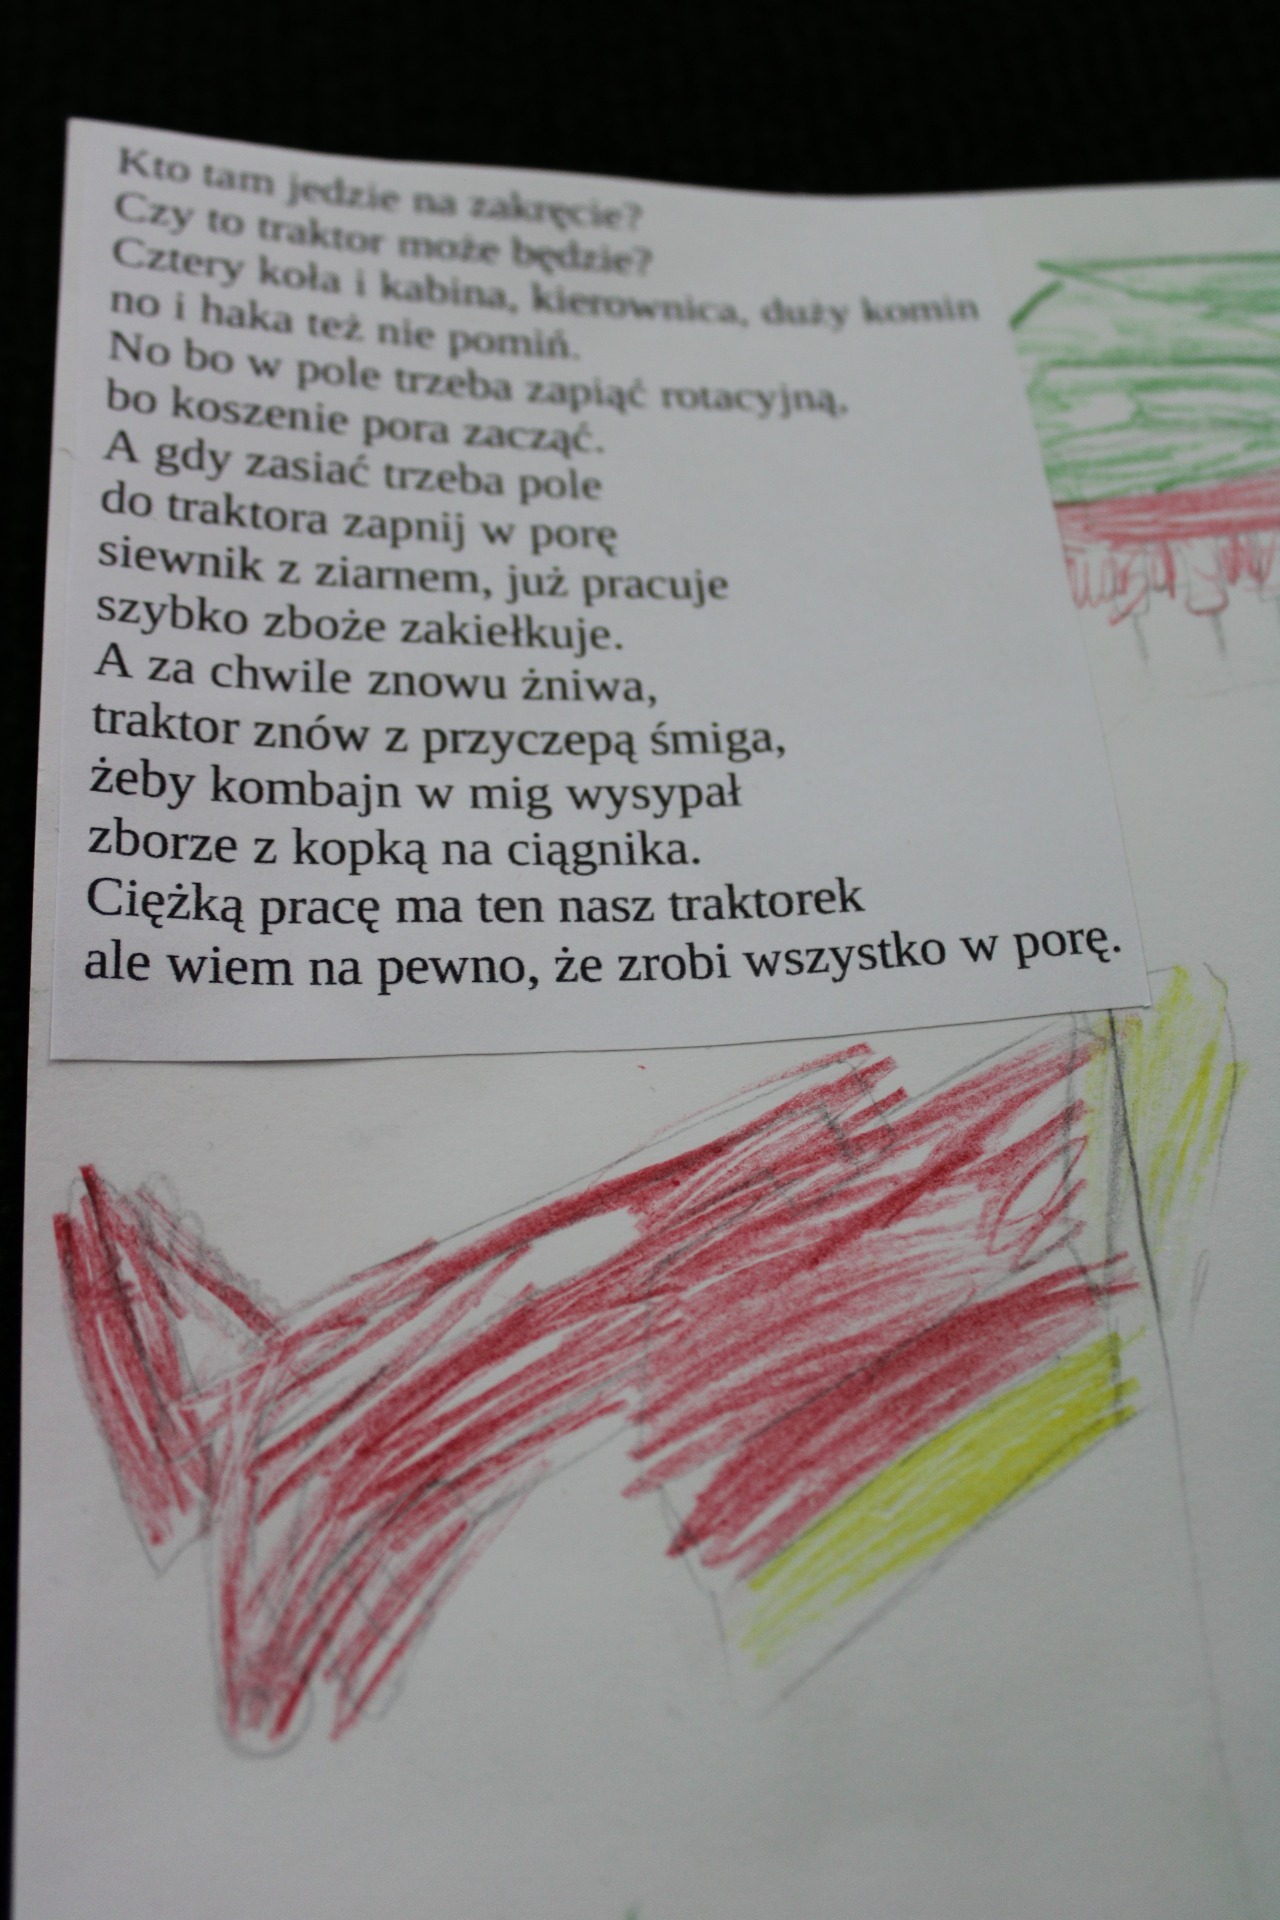 Kto tam jedzie na zakręcie?
Czy to traktor może będzie?
Cztery koła i kabina, kierownica, duży komin
no i haka też nie pomiń.
No bo w pole trzeba zapiąć rotacyjną,
bo koszenie pora zacząć.
A gdy zasiać trzeba pole
do traktora zapnij w porę
siewnik z ziarnem, już pracuje
szybko zboże zakiełkuje.
A za chwile znowu żniwa,
traktor znów z przyczepą śmiga,
żeby kombajn w mig wysypał
zborze z kopką na ciągnika.
Ciężką pracę ma ten nasz traktorek
ale wiem na pewno, że zrobi wszystko w porę.